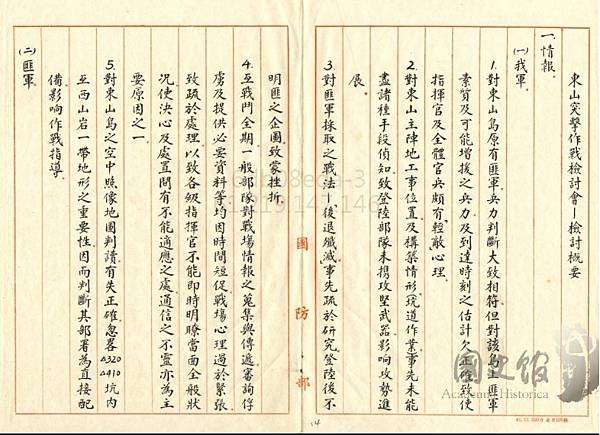 東山突擊作戰檢討會—檢討概要
一、情報
(一)我軍
1.對東山島原有匪軍兵力判斷大致相符但對該島上匪軍
素質及可能增援之兵力及到達時刻之估計欠正確致使
指揮官及全體官兵頗有「輕敵」心理
2.對東山主陣地工事位置及構築情形(坑道作業)事先未能
盡諸種手段偵知致登陸部隊未携攻堅武器影响攻勢進
展
3.對匪軍採取之戰法—後退殲滅事先疏於研究登陸後不
明匪之企圖致蒙挫折
4.在戰鬥全期一般部隊對戰場情報之蒐集與傳遞審詢俘
虜及提供必要資料等均因時間短促戰場心理過於緊張
致疏於處理以致各級指揮官不能即時明瞭當面全般狀
況使決心及處置間有不能適應之處通信之不靈亦為主
要原因之一
5.對東山島之空中照像地圖判讀有失正確忽畧△320△410坑內
至西山岩一帶地形之重要性因而判斷其部署為直接配
備影响作戰指導
(二)匪軍
國防部
14
國史館
Academia Historica